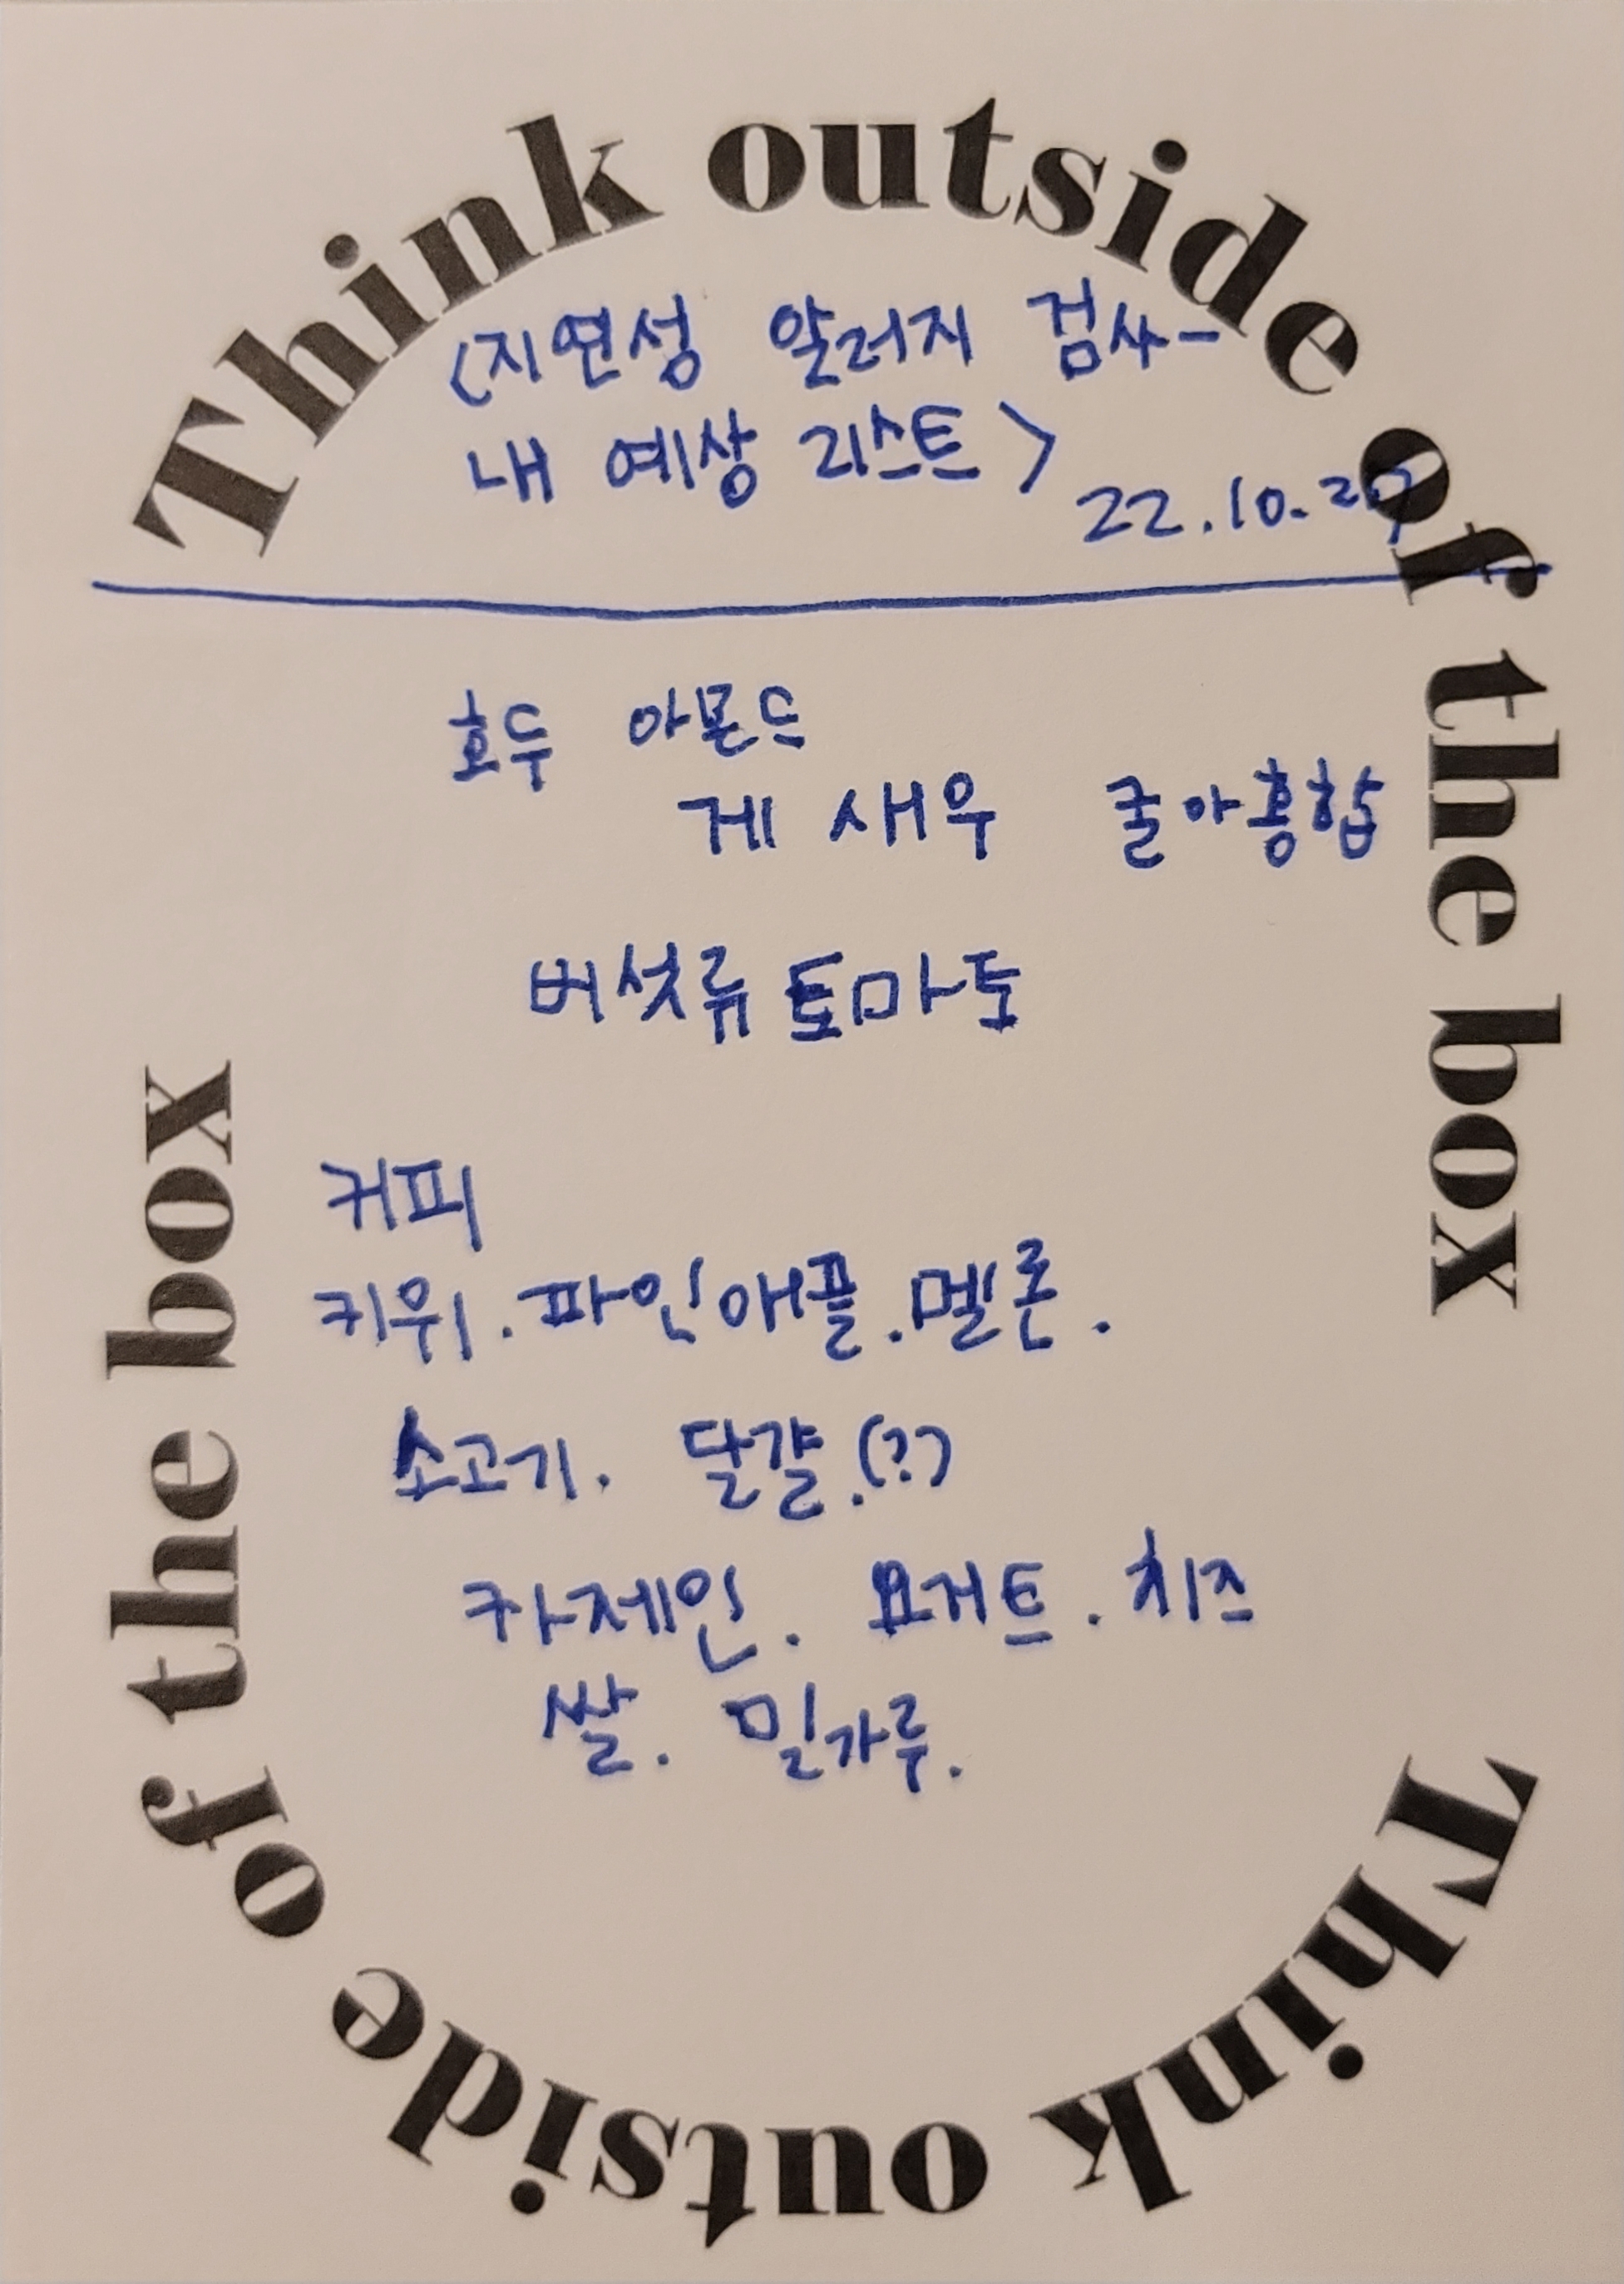 Think outside of the box
<지연성 알러지 검사-
내 예상 리스트>
22.10.27
호두 아몬드
게 새우 굴아홍합
버섯류 토마토
커피
키위.파인애플.멜론.
소고기. 달걀.(?)
카제인. 요거트. 치즈
쌀. 밀가루.
Think outside of the box